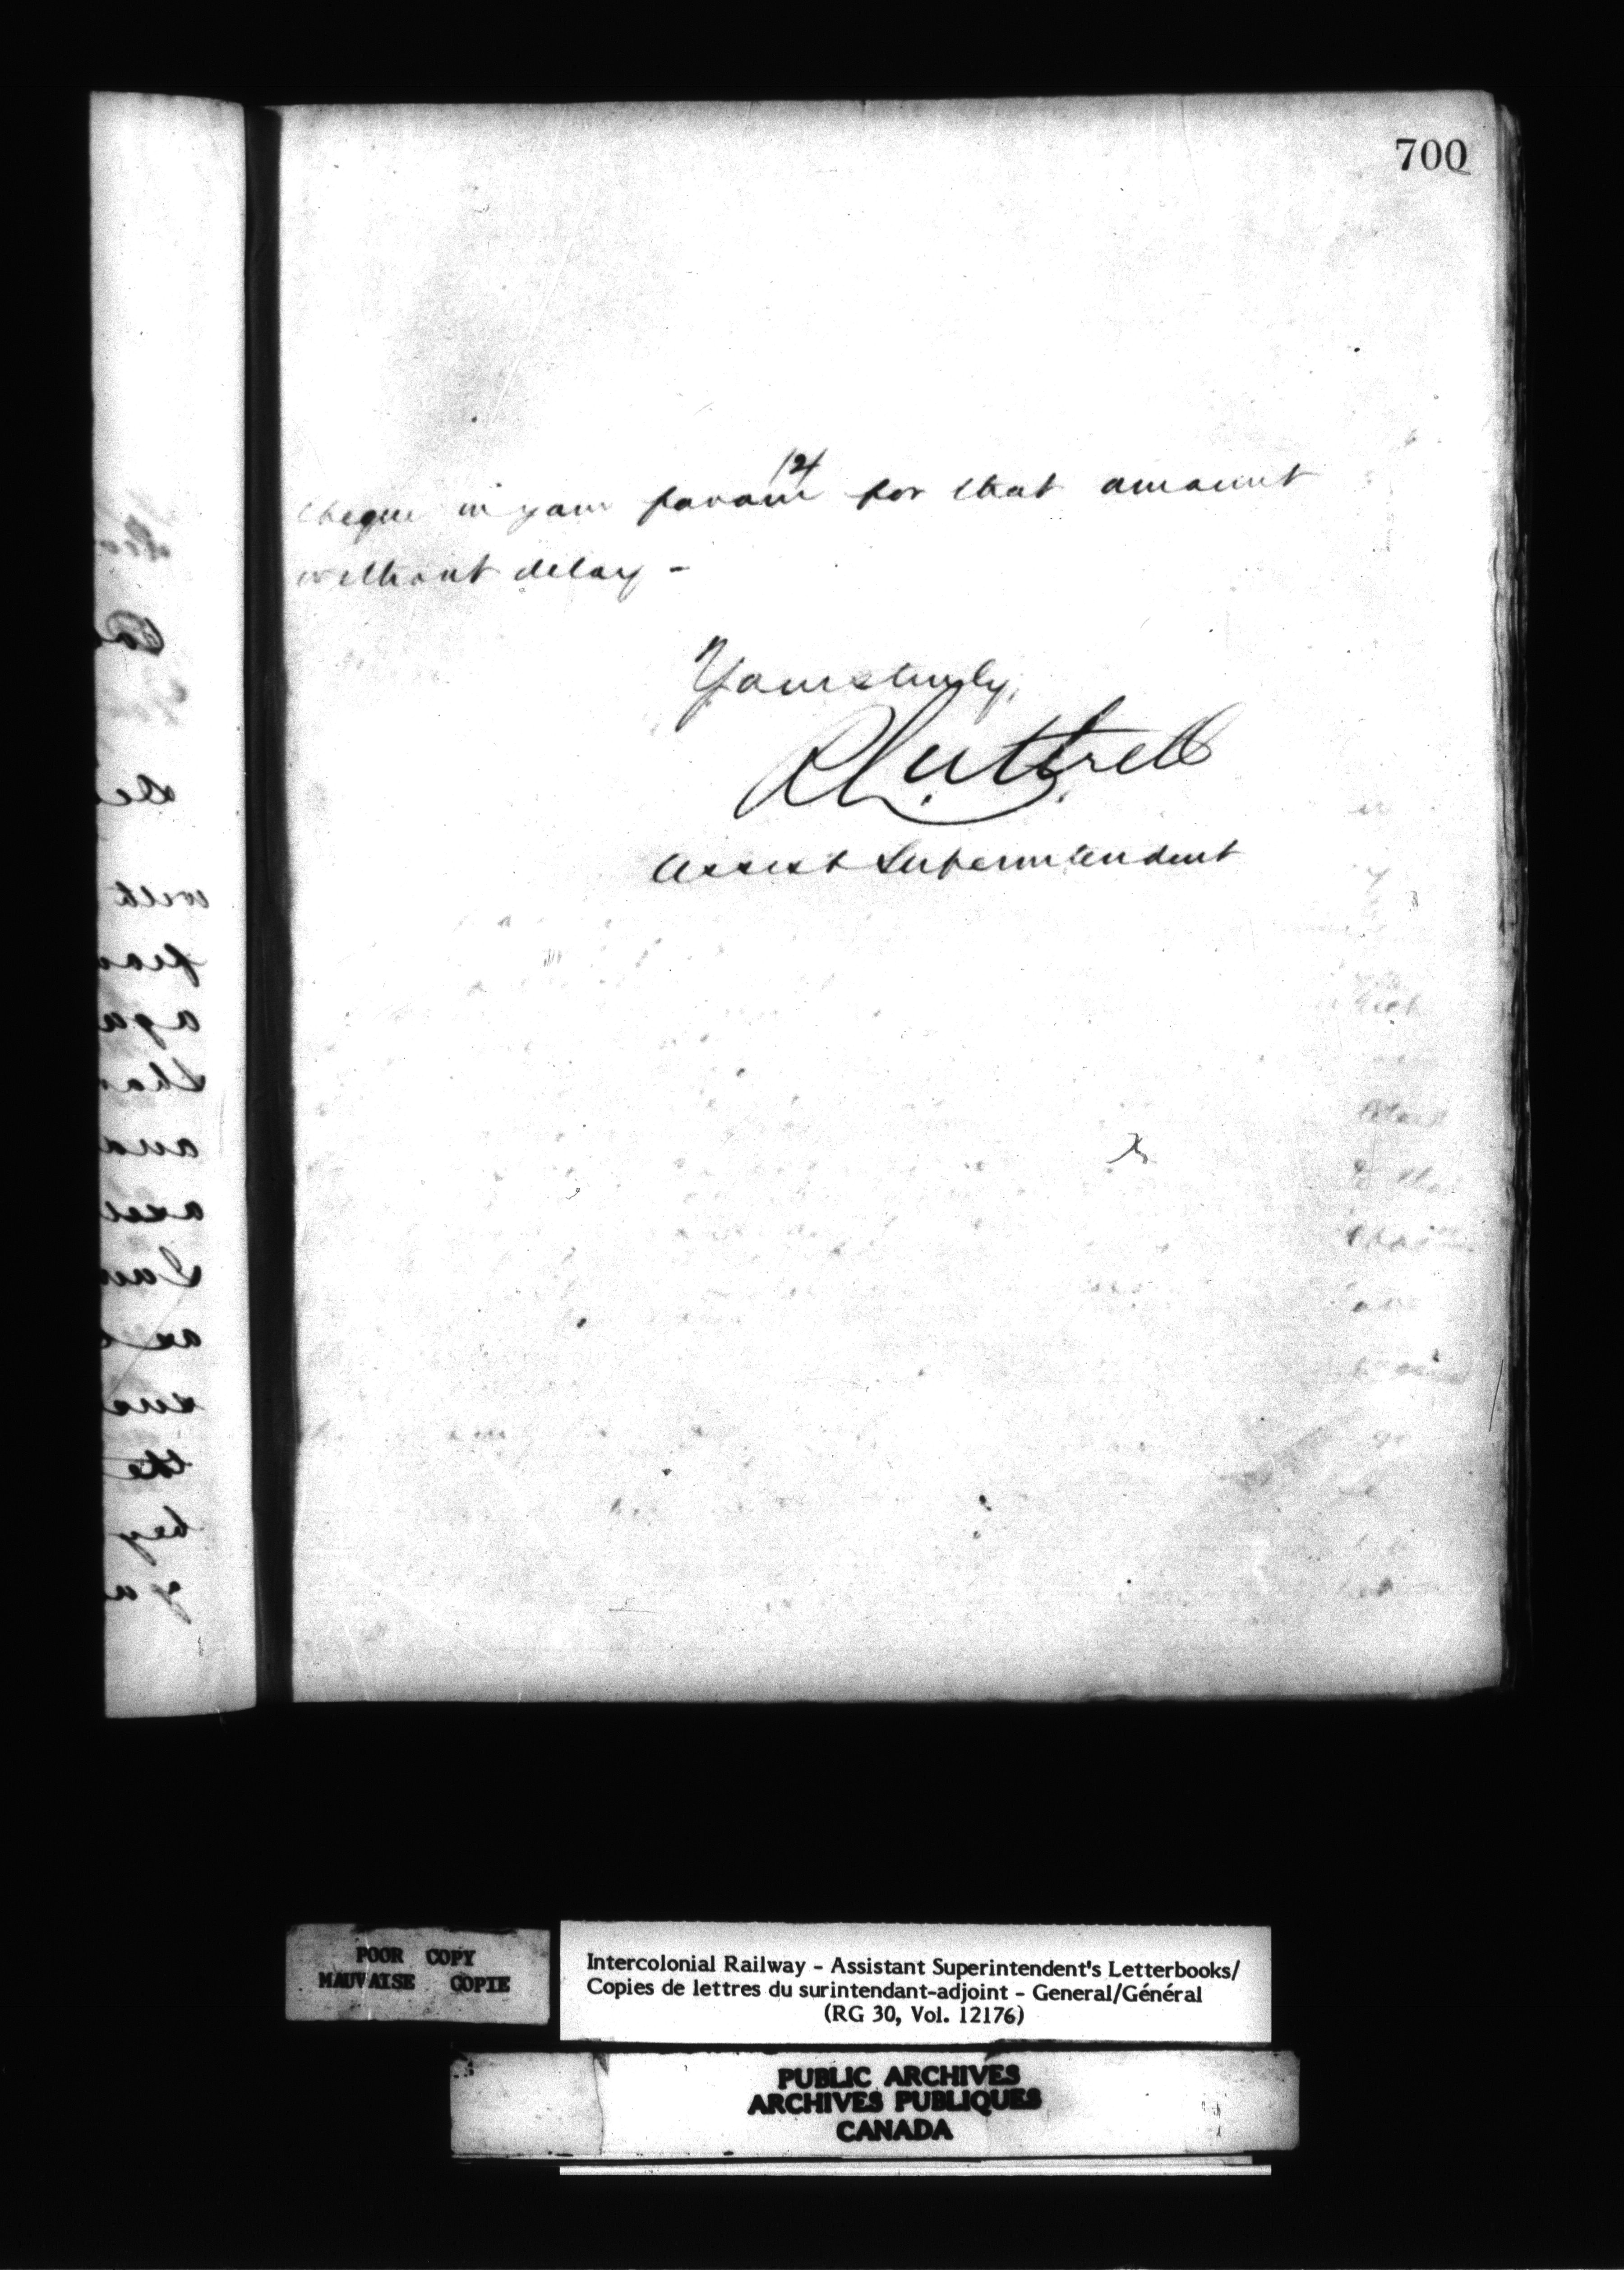 700
12
cheque in your favour for that amount
without delay -
Yours truly,
R Luttrell
Assist Superintendent
POOR COPY
MAUVAISE COPIE
Intercolonial Railway - Assistant Superintendent's Letterbooks/
Copies de lettres du surintendant-adjoint - General/Général
(RG 30, Vol. 12176)
PUBLIC ARCHIVES
ARCHIVES PUBLIQUES
CANADA